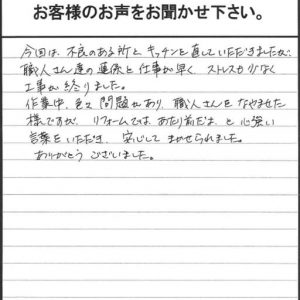 お客様のお声をお聞かせ下さい。
今回は、不良のある所とキッチンを直していただきましたが、
職人さん達の連係と仕事が早く、ストレスが少なく
工事が終りました。
作業中、色々問題もあり、職人さんをなやませた
様ですが、リフォームでは、あたり前だョ、と心強い
言葉をいただき、安心してまかせられました。
ありがとうございました。